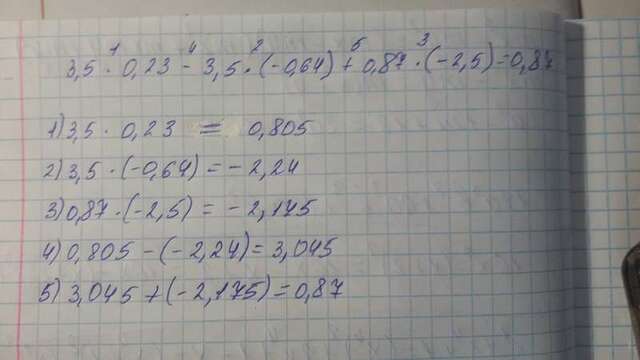 1 4 2 5 3
3,5 · 0,23 - 3,5 · (-0,64) + 0,87 · (-2,5) = 0,87
1) 3,5 · 0,23 = 0,805
2) 3,5 · (-0,64) = -2,24
3) 0,87 · (-2,5) = -2,175
4) 0,805 - (-2,24) = 3,045
5) 3,045 + (-2,175) = 0,87